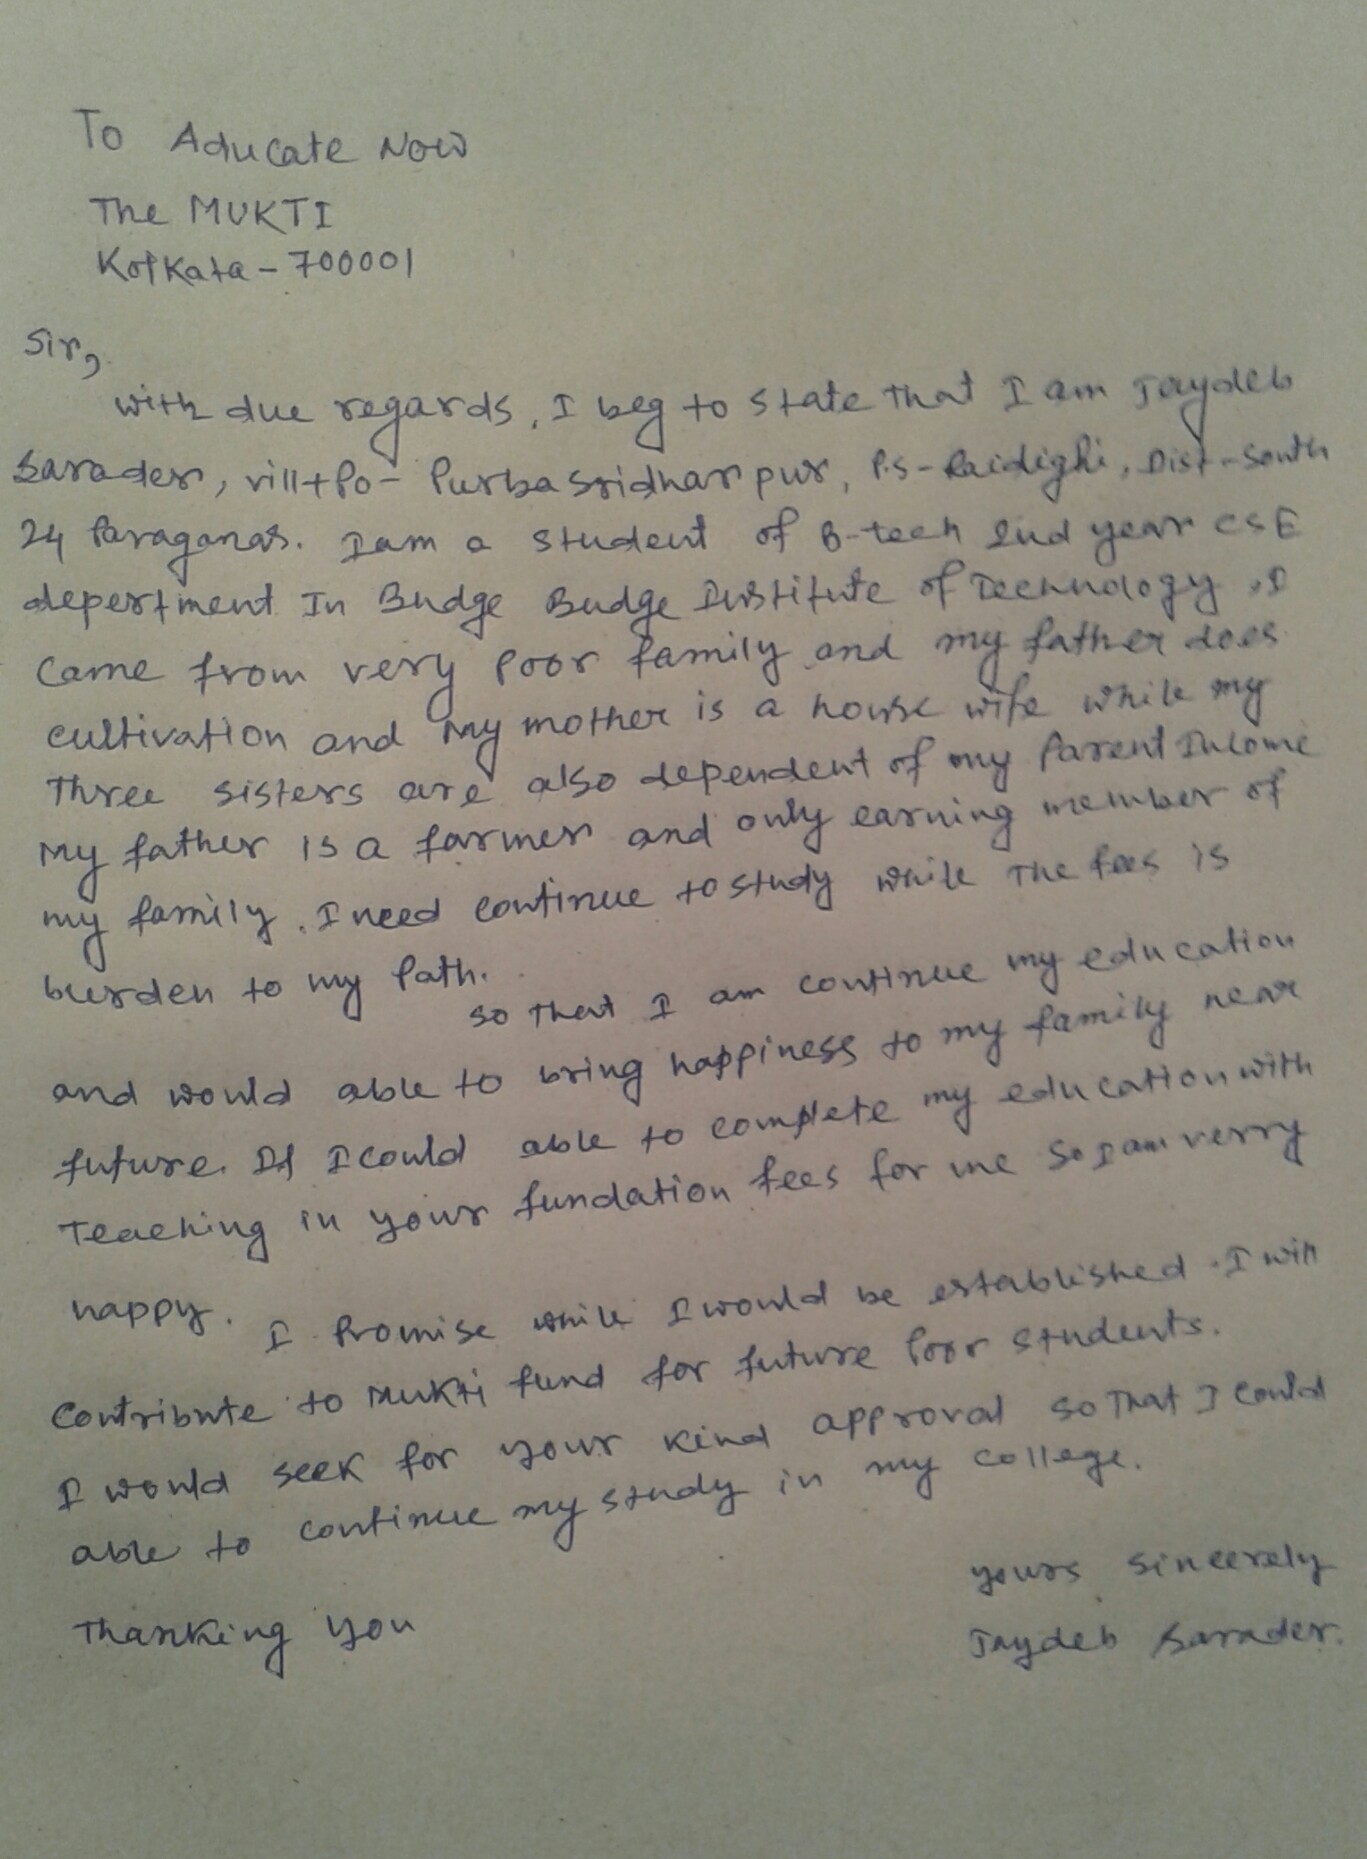 To Aducate Now
The MUKTI
Kolkata - 700001
Sir,
with due regards, I beg to state that I am Jaydeb
Sarader, vill+Po- Purba Sridharpur, P.S- Raidighi, Dist - South
24 Paraganas. I am a student of B-tech 2nd year CSE
depertment In Budge Budge Institute of Technology , I
came from very poor family and my father does
cultivation and my mother is a house wife while my
Three sisters are also dependent of my Parent Income
My father is a farmer and only earning member of
my family. I need continue to study while The fees is
burden to my Path.
so that I am continue my education
and would able to bring happiness to my family near
future. If I could able to complete my education with
Teaching in your fundation fees for me So I am verry
happy.
I Promise while I would be established . I will
Contribute to Mukti fund for future Poor students.
I would seek for your kind approval so That I could
able to continue my study in my college.
yours sincerely
Thanking you
Jaydeb Sarader.